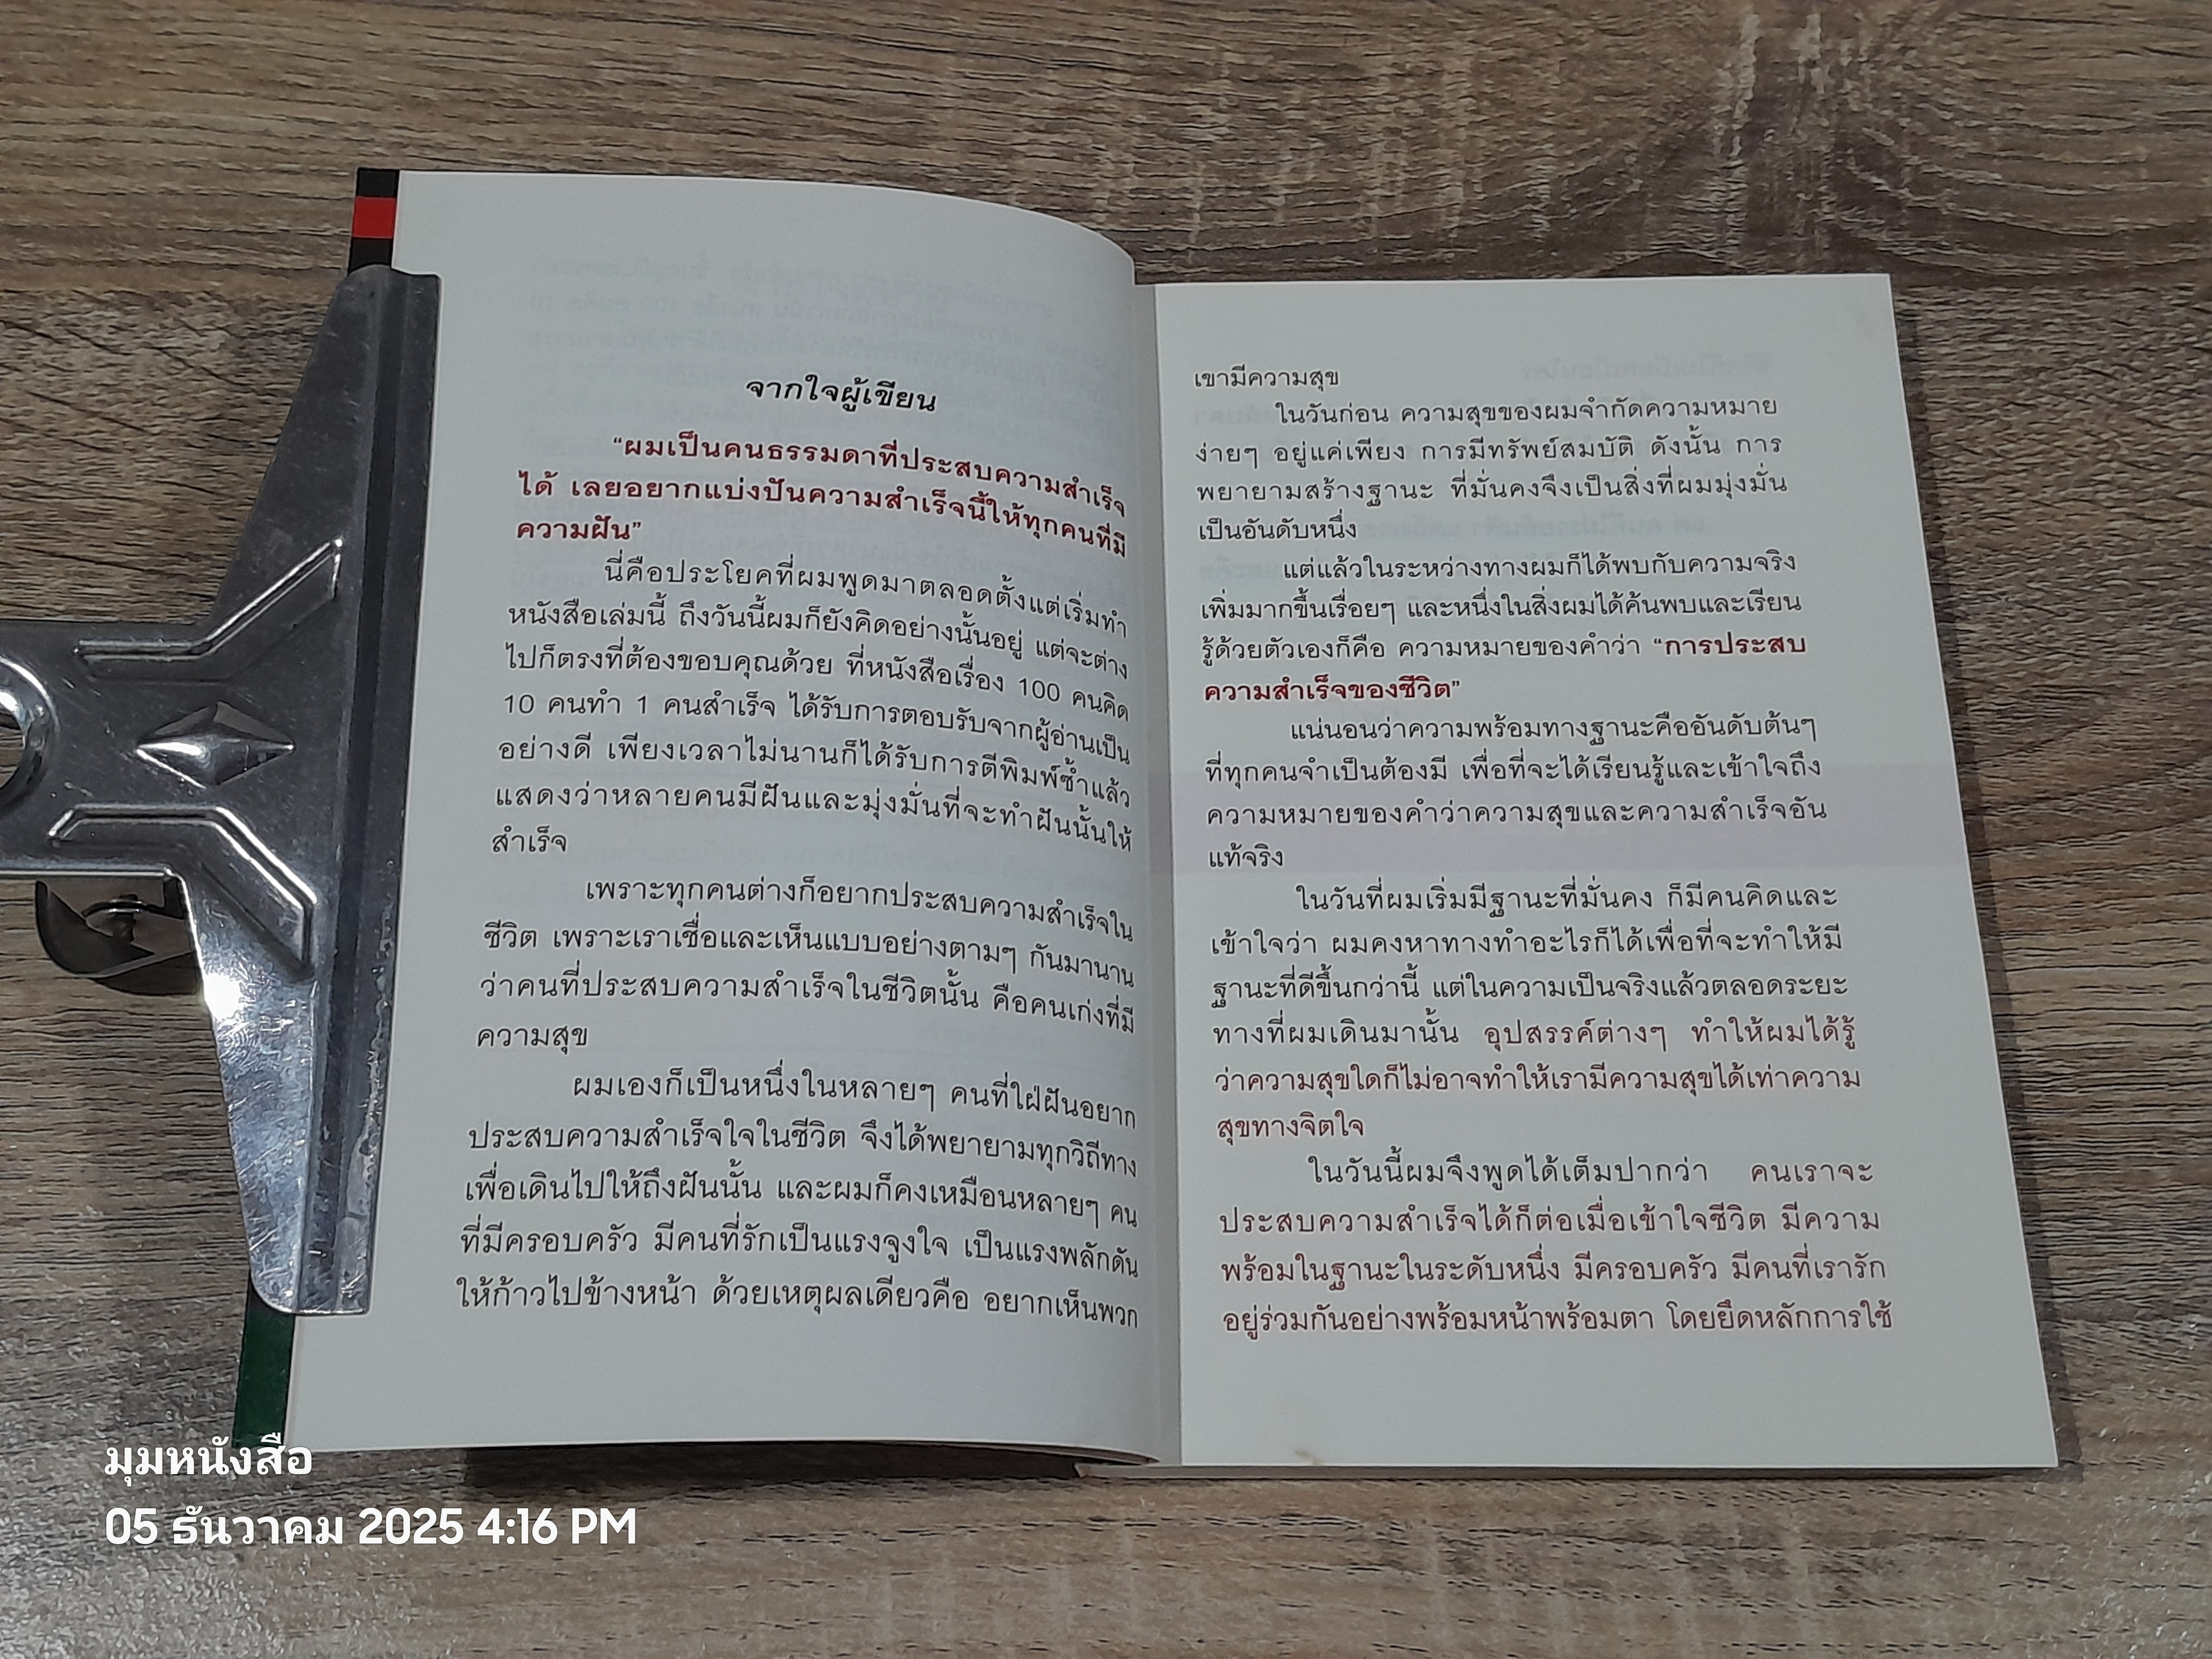 จากใจผู้เขียน
“ผมเป็นคนธรรมดาที่ประสบความสำเร็จ
ได้ เลยอยากแบ่งปันความสำเร็จนี้ให้ทุกคนที่มี
ความฝัน”
นี่คือประโยคที่ผมพูดมาตลอดตั้งแต่เริ่มทำ
หนังสือเล่มนี้ ถึงวันนี้ผมก็ยังคิดอย่างนั้นอยู่ แต่จะต่าง
ไปก็ตรงที่ต้องขอบคุณด้วย ที่หนังสือเรื่อง 100 คนคิด
10 คนทำ 1 คนสำเร็จ ได้รับการตอบรับจากผู้อ่านเป็น
อย่างดี เพียงเวลาไม่นานก็ได้รับการตีพิมพ์ซ้ำแล้ว
แสดงว่าหลายคนมีฝันและมุ่งมั่นที่จะทำฝันนั้นให้
สำเร็จ
เพราะทุกคนต่างก็อยากประสบความสำเร็จใน
ชีวิต เพราะเราเชื่อและเห็นแบบอย่างตามๆ กันมานาน
ว่าคนที่ประสบความสำเร็จในชีวิตนั้น คือคนเก่งที่มี
ความสุข
ผมเองก็เป็นหนึ่งในหลายๆ คนที่ใฝ่ฝันอยาก
ประสบความสำเร็จใจในชีวิต จึงได้พยายามทุกวิถีทาง
เพื่อเดินไปให้ถึงฝันนั้น และผมก็คงเหมือนหลายๆ คน
ที่มีครอบครัว มีคนที่รักเป็นแรงจูงใจ เป็นแรงพลักดัน
ให้ก้าวไปข้างหน้า ด้วยเหตุผลเดียวคือ อยากเห็นพวก
เขามีความสุข
ในวันก่อน ความสุขของผมจำกัดความหมาย
ง่ายๆ อยู่แค่เพียง การมีทรัพย์สมบัติ ดังนั้น การ
พยายามสร้างฐานะ ที่มั่นคงจึงเป็นสิ่งที่ผมมุ่งมั่น
เป็นอันดับหนึ่ง
แต่แล้วในระหว่างทางผมก็ได้พบกับความจริง
เพิ่มมากขึ้นเรื่อยๆ และหนึ่งในสิ่งผมได้ค้นพบและเรียน
รู้ด้วยตัวเองก็คือ ความหมายของคำว่า “การประสบ
ความสำเร็จของชีวิต”
แน่นอนว่าความพร้อมทางฐานะคืออันดับต้นๆ
ที่ทุกคนจำเป็นต้องมี เพื่อที่จะได้เรียนรู้และเข้าใจถึง
ความหมายของคำว่าความสุขและความสำเร็จอัน
แท้จริง
ในวันที่ผมเริ่มมีฐานะที่มั่นคง ก็มีคนคิดและ
เข้าใจว่า ผมคงหาทางทำอะไรก็ได้เพื่อที่จะทำให้มี
ฐานะที่ดีขึ้นกว่านี้ แต่ในความเป็นจริงแล้วตลอดระยะ
ทางที่ผมเดินมานั้น อุปสรรค์ต่างๆ ทำให้ผมได้รู้
ว่าความสุขใดก็ไม่อาจทำให้เรามีความสุขได้เท่าความ
สุขทางจิตใจ
ในวันนี้ผมจึงพูดได้เต็มปากว่า คนเราจะ
ประสบความสำเร็จได้ก็ต่อเมื่อเข้าใจชีวิต มีความ
พร้อมในฐานะในระดับหนึ่ง มีครอบครัว มีคนที่เรารัก
อยู่ร่วมกันอย่างพร้อมหน้าพร้อมตา โดยยึดหลักการใช้
มุมหนังสือ
05 ธันวาคม 2025 4:16 PM